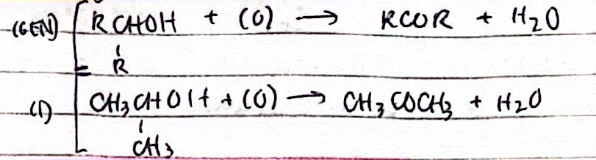 (GEN) RCHOH + (O) → RCOR + H2O
R
(1) CH3CHOH + (O) → CH3COCH3 + H2O
CH3